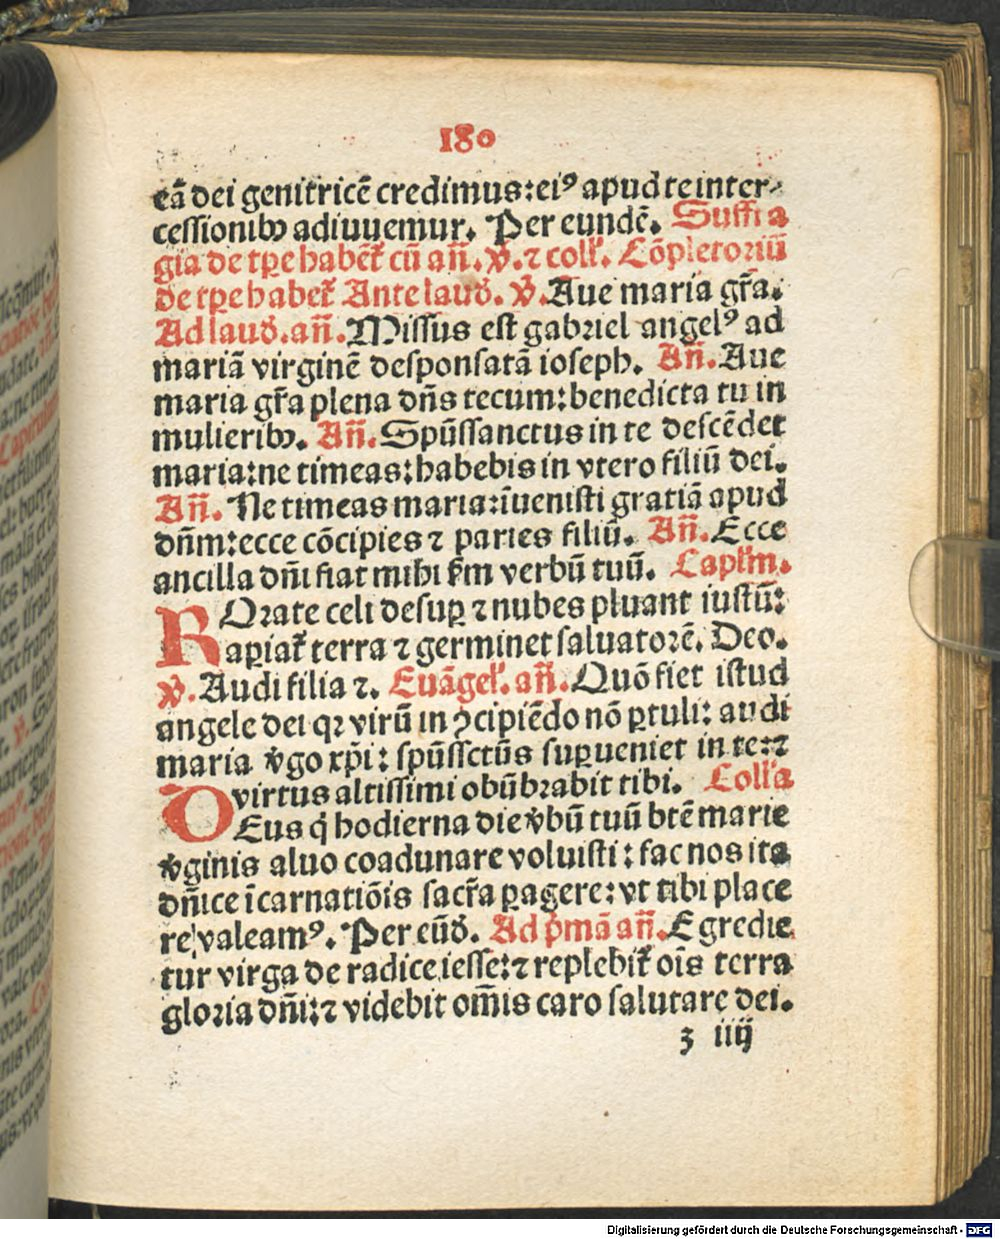 180
eā dei genitricē credimus: eiꝰ apud te inter⸗
cessionibꝫ adiuuemur. Per eundē. Suffra
gia de tꝑe habēt̃ cū añ. ℣. ⁊ coll̃. Cōpletoriū
de tꝑe habet̃ Ante laud̃. ℣. Aue maria gr̃a.
Ad laud̃. añ. Missus est gabriel angelꝰ ad
mariā virginē desponsatā ioseph. Añ. Aue
maria gr̃a plena dñs tecum: benedicta tu in
mulieribꝫ. Añ. Spūssanctus in te descēdet
maria: ne timeas: habebis in vtero filiū dei.
Añ. Ne timeas maria: īuenisti gratiā apud
dñm: ecce cōcipies ⁊ paries filiū. Añ. Ecce
ancilla dñi fiat mihi ẜm verbū tuū. Capl̃m.
ROrate celi desuꝑ ⁊ nubes pluant iustū:
aꝑiat̃ terra ⁊ germinet saluatorē. Deo.
℣. Audi filia ⁊. Euāgel̃. añ. Quō fiet istud
angele dei qꝛ virū in ꝯcipiēdo nō ꝑtuli: audi
maria v̾go xp̃i: spūssctūs suꝑueniet in te: ⁊
virtus altissimi obūbrabit tibi. Coll̃a
DEus q̇ hodierna die v̾bū tuū btē marie
v̾ginis aluo coadunare voluisti: fac nos ita
dñice īcarnatiōis sacr̃a ꝑagere: vt tibi place
re valeamꝰ. Per eūd̃. Ad p̾mā añ. Egredie
tur virga de radice iesse: ⁊ replebit̃ oīs terra
gloria dñi: ⁊ videbit om̄is caro salutare dei.
z iiij
Digitalisierung gefördert durch die Deutsche Forschungsgemeinschaft - DFG